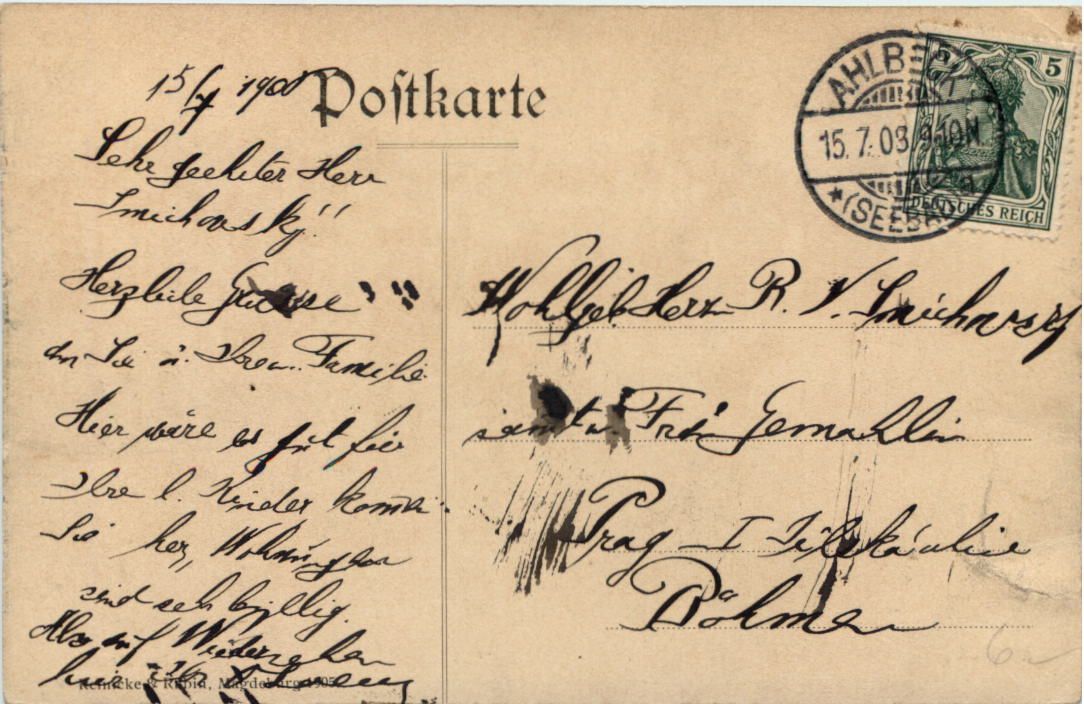 15/7 1908
Postkarte
Sehr geehrter Herr
Smichovsky!!
Herzliche Grüsse
an Sie u. Ihre w. Familie.
Hier wäre es gut für
Ihre l. Kinder komen
Sie her, Wohnungen
sind sehr byllig.
Also auf Wiedersehen
hier
Reinicke & Rubin, Magdeburg 1905
AHLBECK
15.7.08.9-10N
(SEEBAD)
5
5
DEUTSCHES REICH
Wohlgeb Herrn R. V. Smichovsky
samt w. Frau Gemahlin
Prag I
Böhmen
6